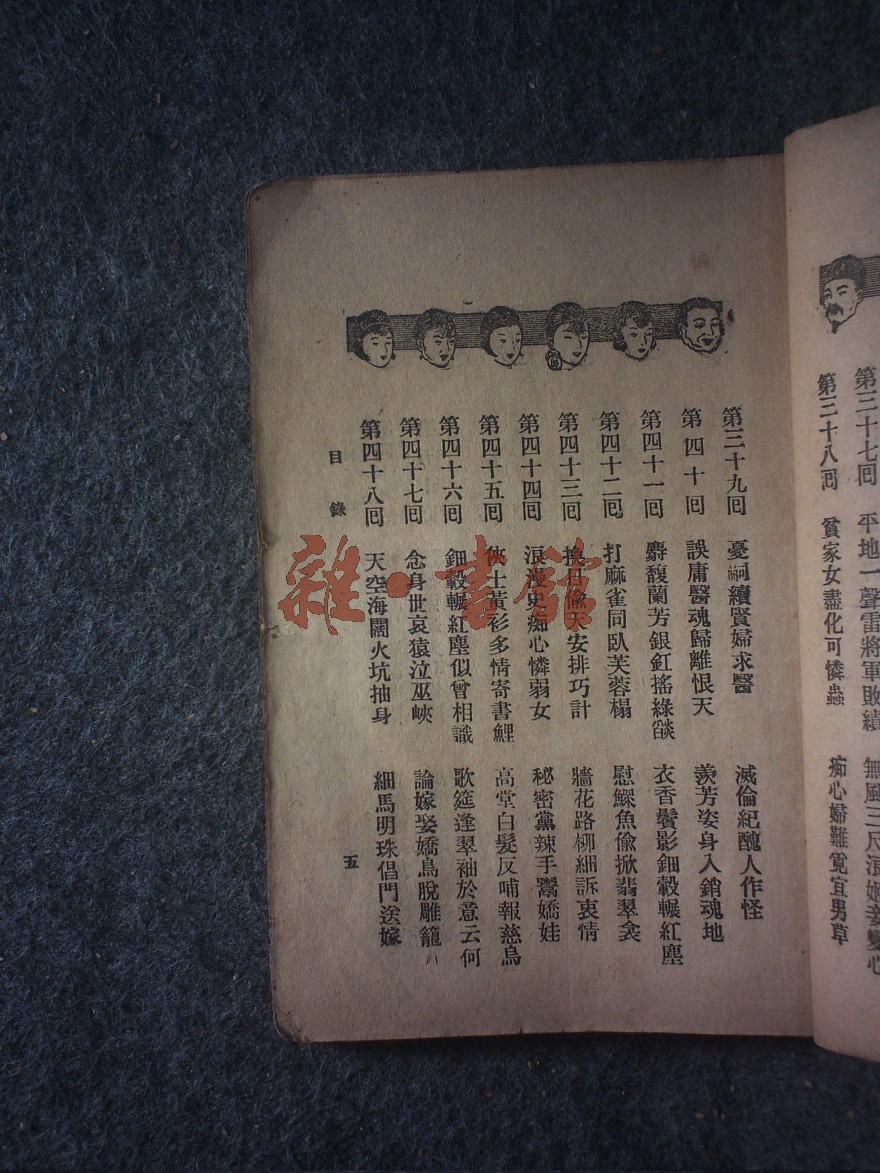 第三十七回 平地一聲雷將軍敗績 無風三尺浪姬妾變心
第三十八回 貧家女盡化可憐蟲 痴心婦難覓宜男草
第三十九回 憂嗣續賢婦求醫 滅倫紀醜人作怪
第四十回 誤庸醫魂歸離恨天 羨芳姿身入銷魂地
第四十一回 麝馥蘭芳銀釭搖綠燄 衣香鬢影鈿轂輾紅塵
第四十二回 打麻雀同臥芙蓉榻 慰鰥魚偷掀翡翠衾
第四十三回 換日偸天安排巧計 牆花路柳細訴衷情
第四十四回 浪漫史痴心憐弱女 秘密黨辣手鬻嬌娃
第四十五回 俠士黃衫多情寄書鯉 高堂白髮反哺報慈烏
第四十六回 鈿轂輾紅塵似曾相識 歌筵逢翠袖於意云何
第四十七回 念身世哀猿泣巫峽 論嫁娶嬌鳥脫雕籠
第四十八回 天空海闊火坑抽身 細馬明珠倡門送嫁
目錄
五
雜·書館